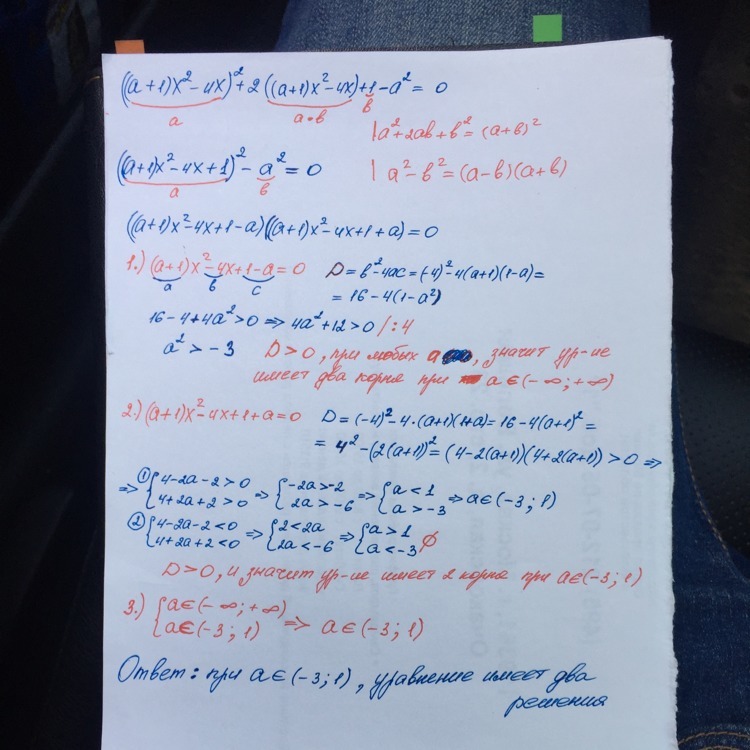 ((a+1)x²-4x)²+2((a+1)x²-4x)+1-a²=0
a a•b b
|a²+2ab+b²=(a+b)²
((a+1)x²-4x+1)²-a²=0
a b
|a²-b²=(a-b)(a+b)
((a+1)x²-4x+1-a)((a+1)x²-4x+1+a)=0
1.) (a+1)x²-4x+1-a=0 D=b²-4ac=(-4)²-4(a+1)(1-a)=
a b c
=16-4(1-a²)
16-4+4a²>0 => 4a²+12>0 /:4
a²>-3 D>0, при любых a, значит ур-ие
имеет два корня при a∈(-∞;+∞)
2.) (a+1)x²-4x+1+a=0 D=(-4)²-4•(a+1)(1+a)=16-4(a+1)²=
=4²-(2(a+1))²=(4-2(a+1))(4+2(a+1))>0 =>
=> ① {4-2a-2>0 => {-2a>-2 => {a<1 => a∈(-3;1)
4+2a+2>0 2a>-6 a>-3
② {4-2a-2<0 => {2<2a => {a>1 ∅
4+2a+2<0 2a<-6 a<-3
D>0, и значит ур-ие имеет 2 корня при a∈(-3;1)
3.) {a∈(-∞;+∞)
a∈(-3;1) => a∈(-3;1)
Ответ: при a∈(-3;1), уравнение имеет два
решения